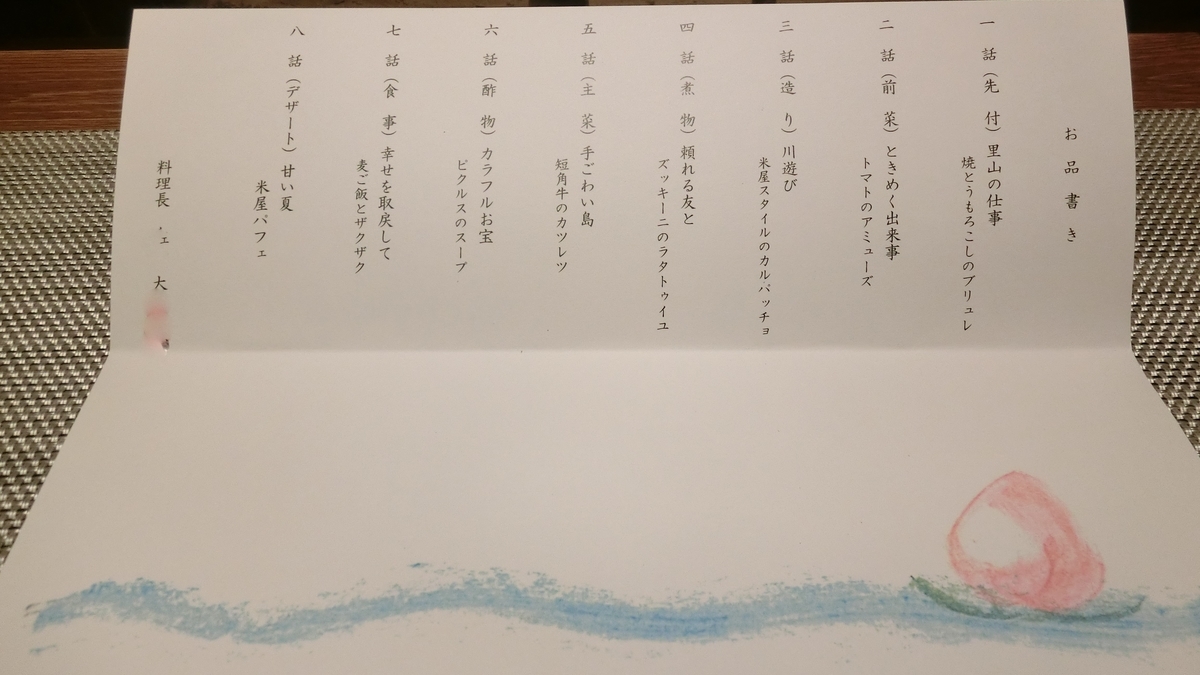 お品書き
一 話（先 付）里山の仕事
焼とうもろこしのブリュレ
二 話（前 菜）ときめく出来事
トマトのアミューズ
三 話（造 り）川遊び
米屋スタイルのカルパッチョ
四 話（煮 物）頼れる友と
ズッキーニのラタトゥイユ
五 話（主 菜）手ごわい島
短角牛のカツレツ
六 話（酢 物）カラフルお宝
ピクルスのスープ
七 話（食 事）幸せを取戻して
麦ご飯とザクザク
八 話（デザート）甘い夏
米屋パフェ
料理長 大